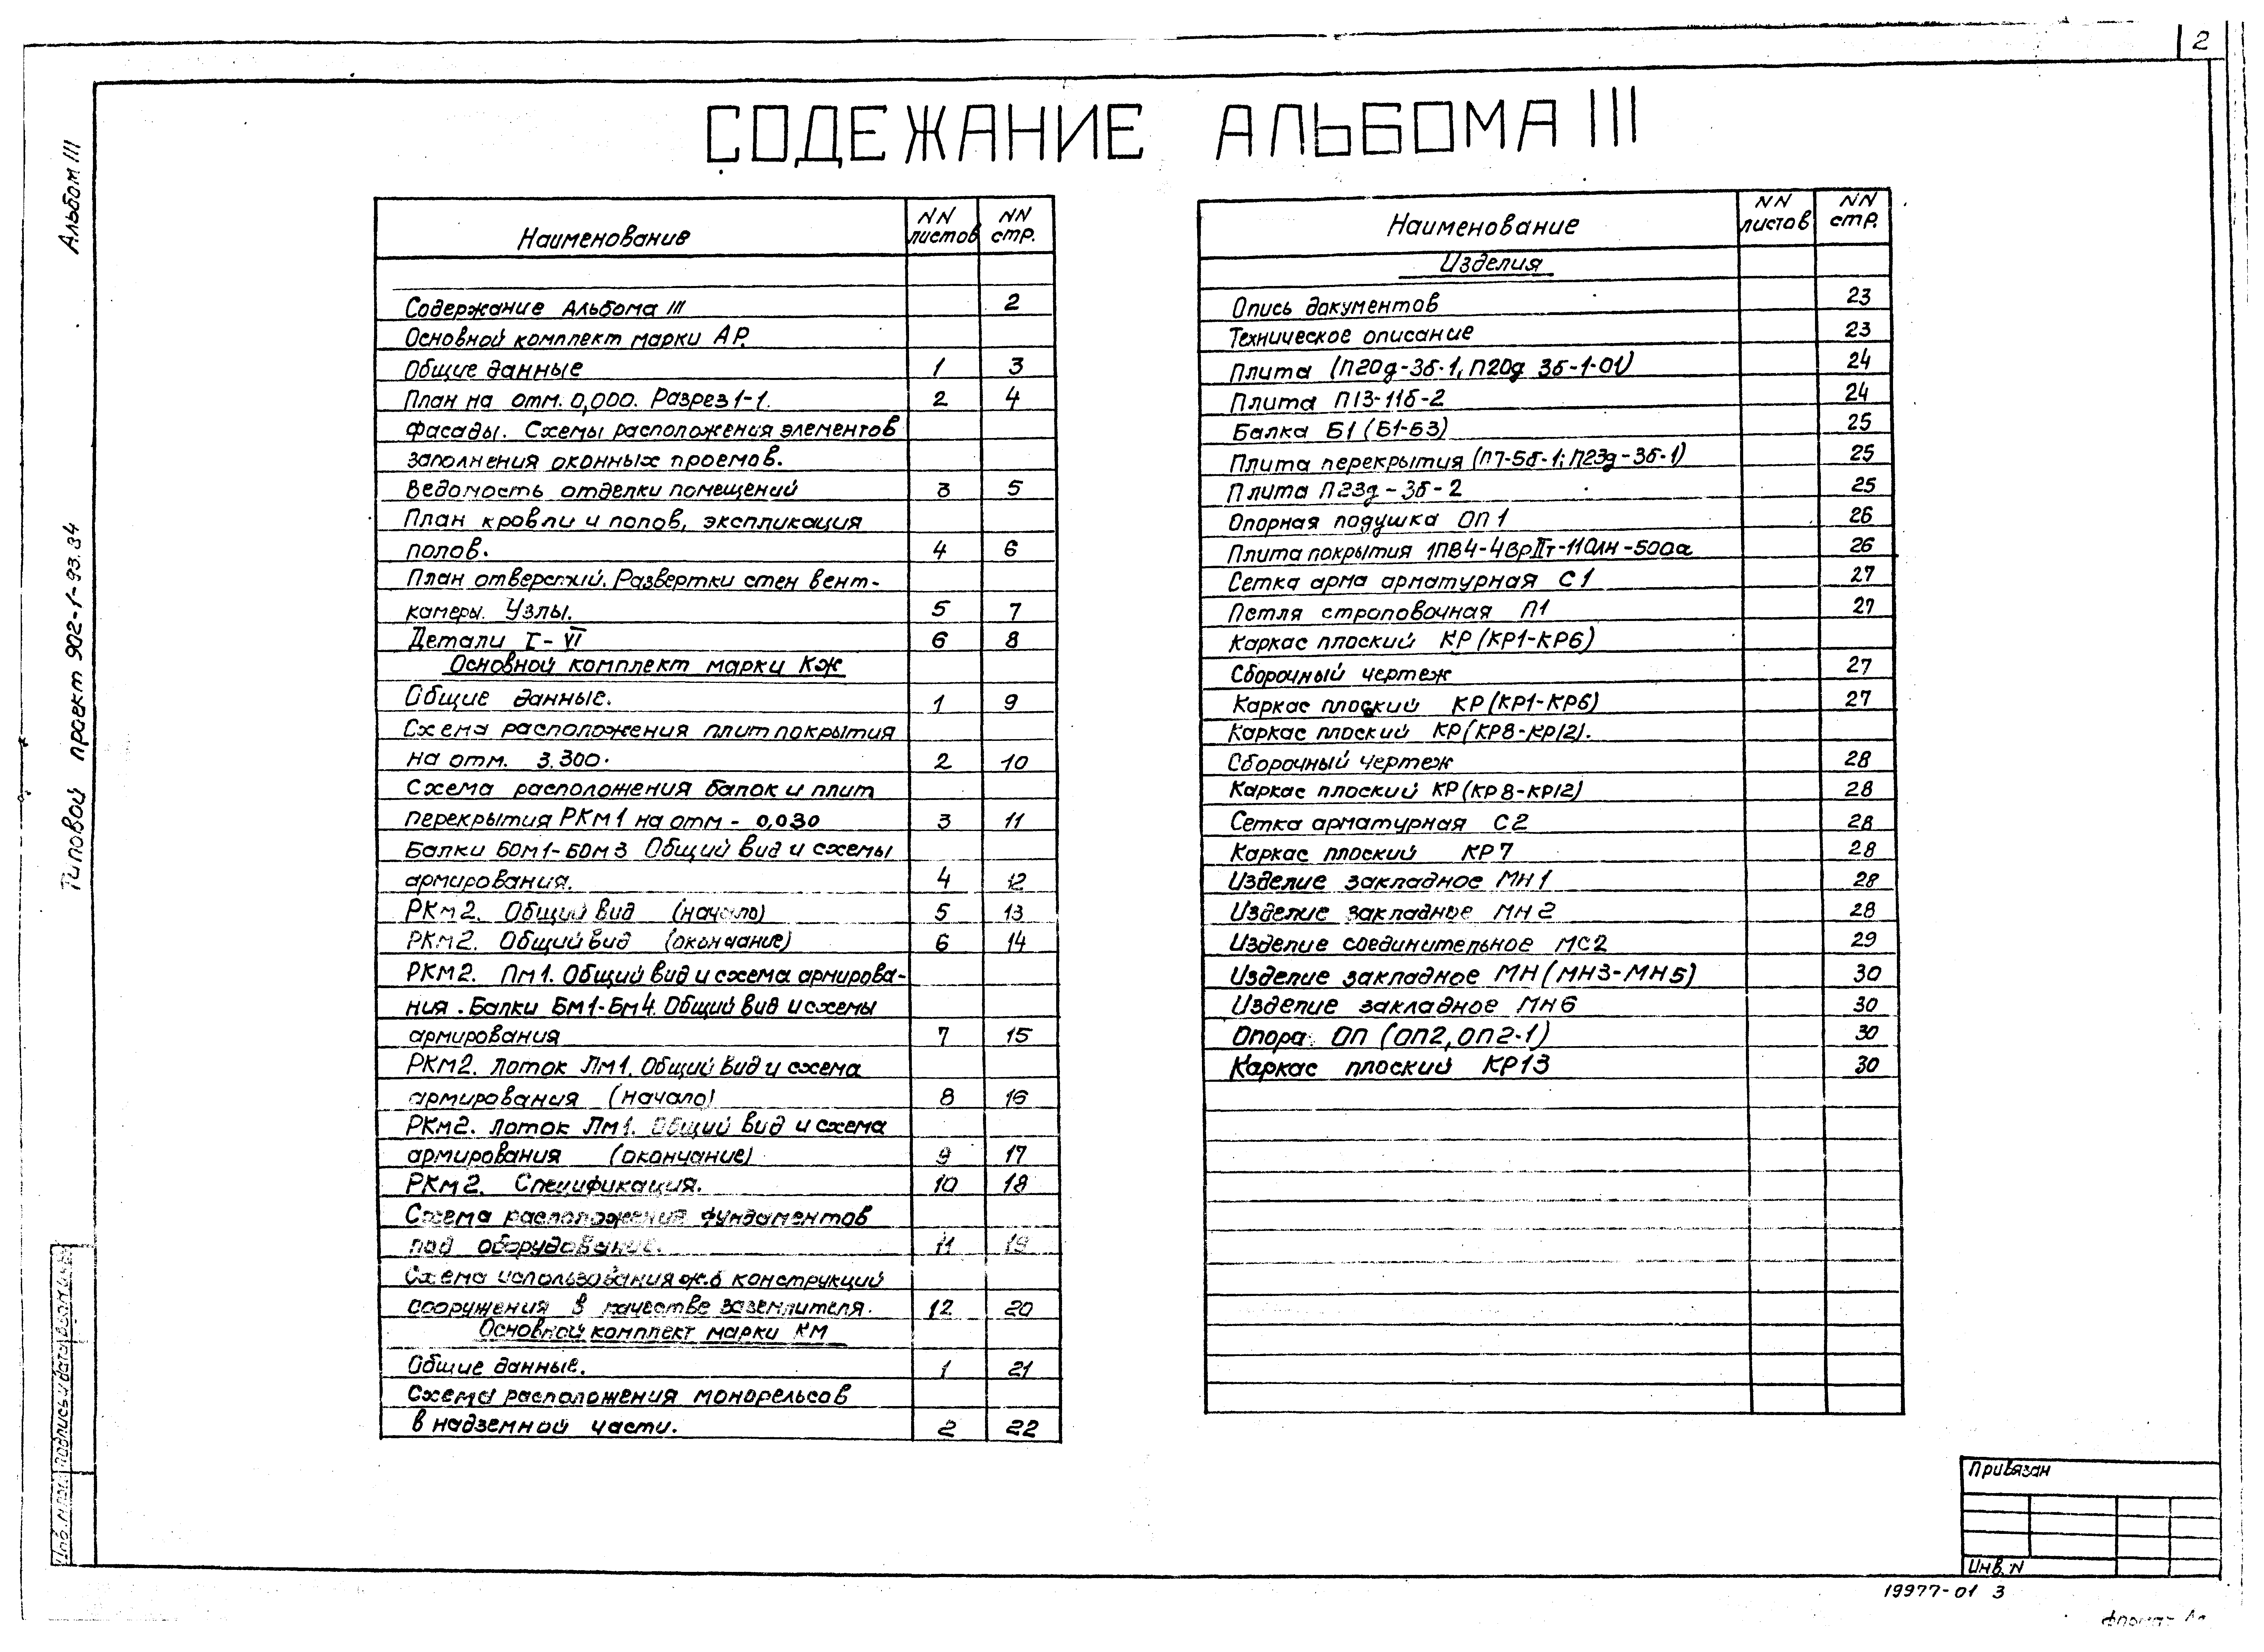 2
СОДЕЖАНИЕ АЛЬБОМА III
Альбом III
Типовой проект 902-1-93.84
Наименование NN листов NN стр.
Содержание Альбома III 2
Основной комплект марки АР.
Общие данные 1 3
План на отм. 0,000. Разрез 1-1. 2 4
Фасады. Схемы расположения элементов
заполнения оконных проемов.
Ведомость отделки помещений 3 5
План кровли и полов, экспликация
полов. 4 6
План отверстий. Развертки стен вент-
камеры. Узлы. 5 7
Детали I-VI 6 8
Основной комплект марки КЖ
Общие данные. 1 9
Схема расположения плит покрытия
на отм. 3.300. 2 10
Схема расположения балок и плит
перекрытия РКм1 на отм - 0,030 3 11
Балки БОм1-БОм3 Общий вид и схемы
армирования. 4 12
РКм2. Общий вид (начало) 5 13
РКм2. Общий вид (окончание) 6 14
РКм2. Пм1. Общий вид и схема армирова-
ния. Балки Бм1-Бм4. Общий вид и схемы
армирования 7 15
РКм2. Лоток Лм1. Общий вид и схема
армирования (начало) 8 16
РКм2. Лоток Лм1. Общий вид и схема
армирования (окончание) 9 17
РКм2. Спецификация. 10 18
Схема расположения фундаментов
под оборудование. 11 19
Схема использования ж.б конструкций
сооружения в качестве заземлителя. 12 20
Основной комплект марки КМ
Общие данные. 1 21
Схема расположения монорельсов
в надземной части. 2 22
Наименование NN листов NN стр.
Изделия
Опись документов 23
Техническое описание 23
Плита (П20д-3б-1, П20д 3б-1-01) 24
Плита П13-11б-2 24
Балка Б1 (Б1-Б3) 25
Плита перекрытия (П7-5б-1; П23д-3б-1) 25
Плита П23д-3б-2 25
Опорная подушка ОП1 26
Плита покрытия 1ПВ4-4ВрIIт-110лн-500а 26
Сетка арма арматурная С1 27
Петля строповочная П1 27
Каркас плоский КР (КР1-КР6)
Сборочный чертеж 27
Каркас плоский КР (КР1-КР6) 27
Каркас плоский КР (КР8-КР12).
Сборочный чертеж 28
Каркас плоский КР (КР8-КР12) 28
Сетка арматурная С2 28
Каркас плоский КР7 28
Изделие закладное МН1 28
Изделие закладное МН2 28
Изделие соединительное МС2 29
Изделие закладное МН (МН3-МН5) 30
Изделие закладное МН6 30
Опора ОП (ОП2, ОП2-1) 30
Каркас плоский КР13 30
Привязан
Инв. N
Подпись и дата
19977-01 3